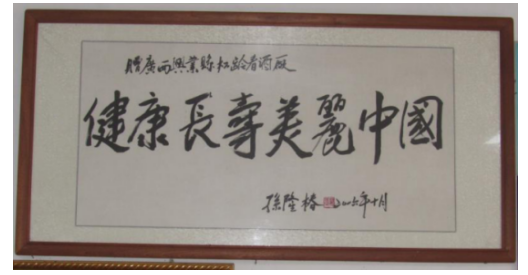 贈廣西興業縣松齡肴酒廠
健康長壽美麗中國
孫隆椿 二〇一五年十月